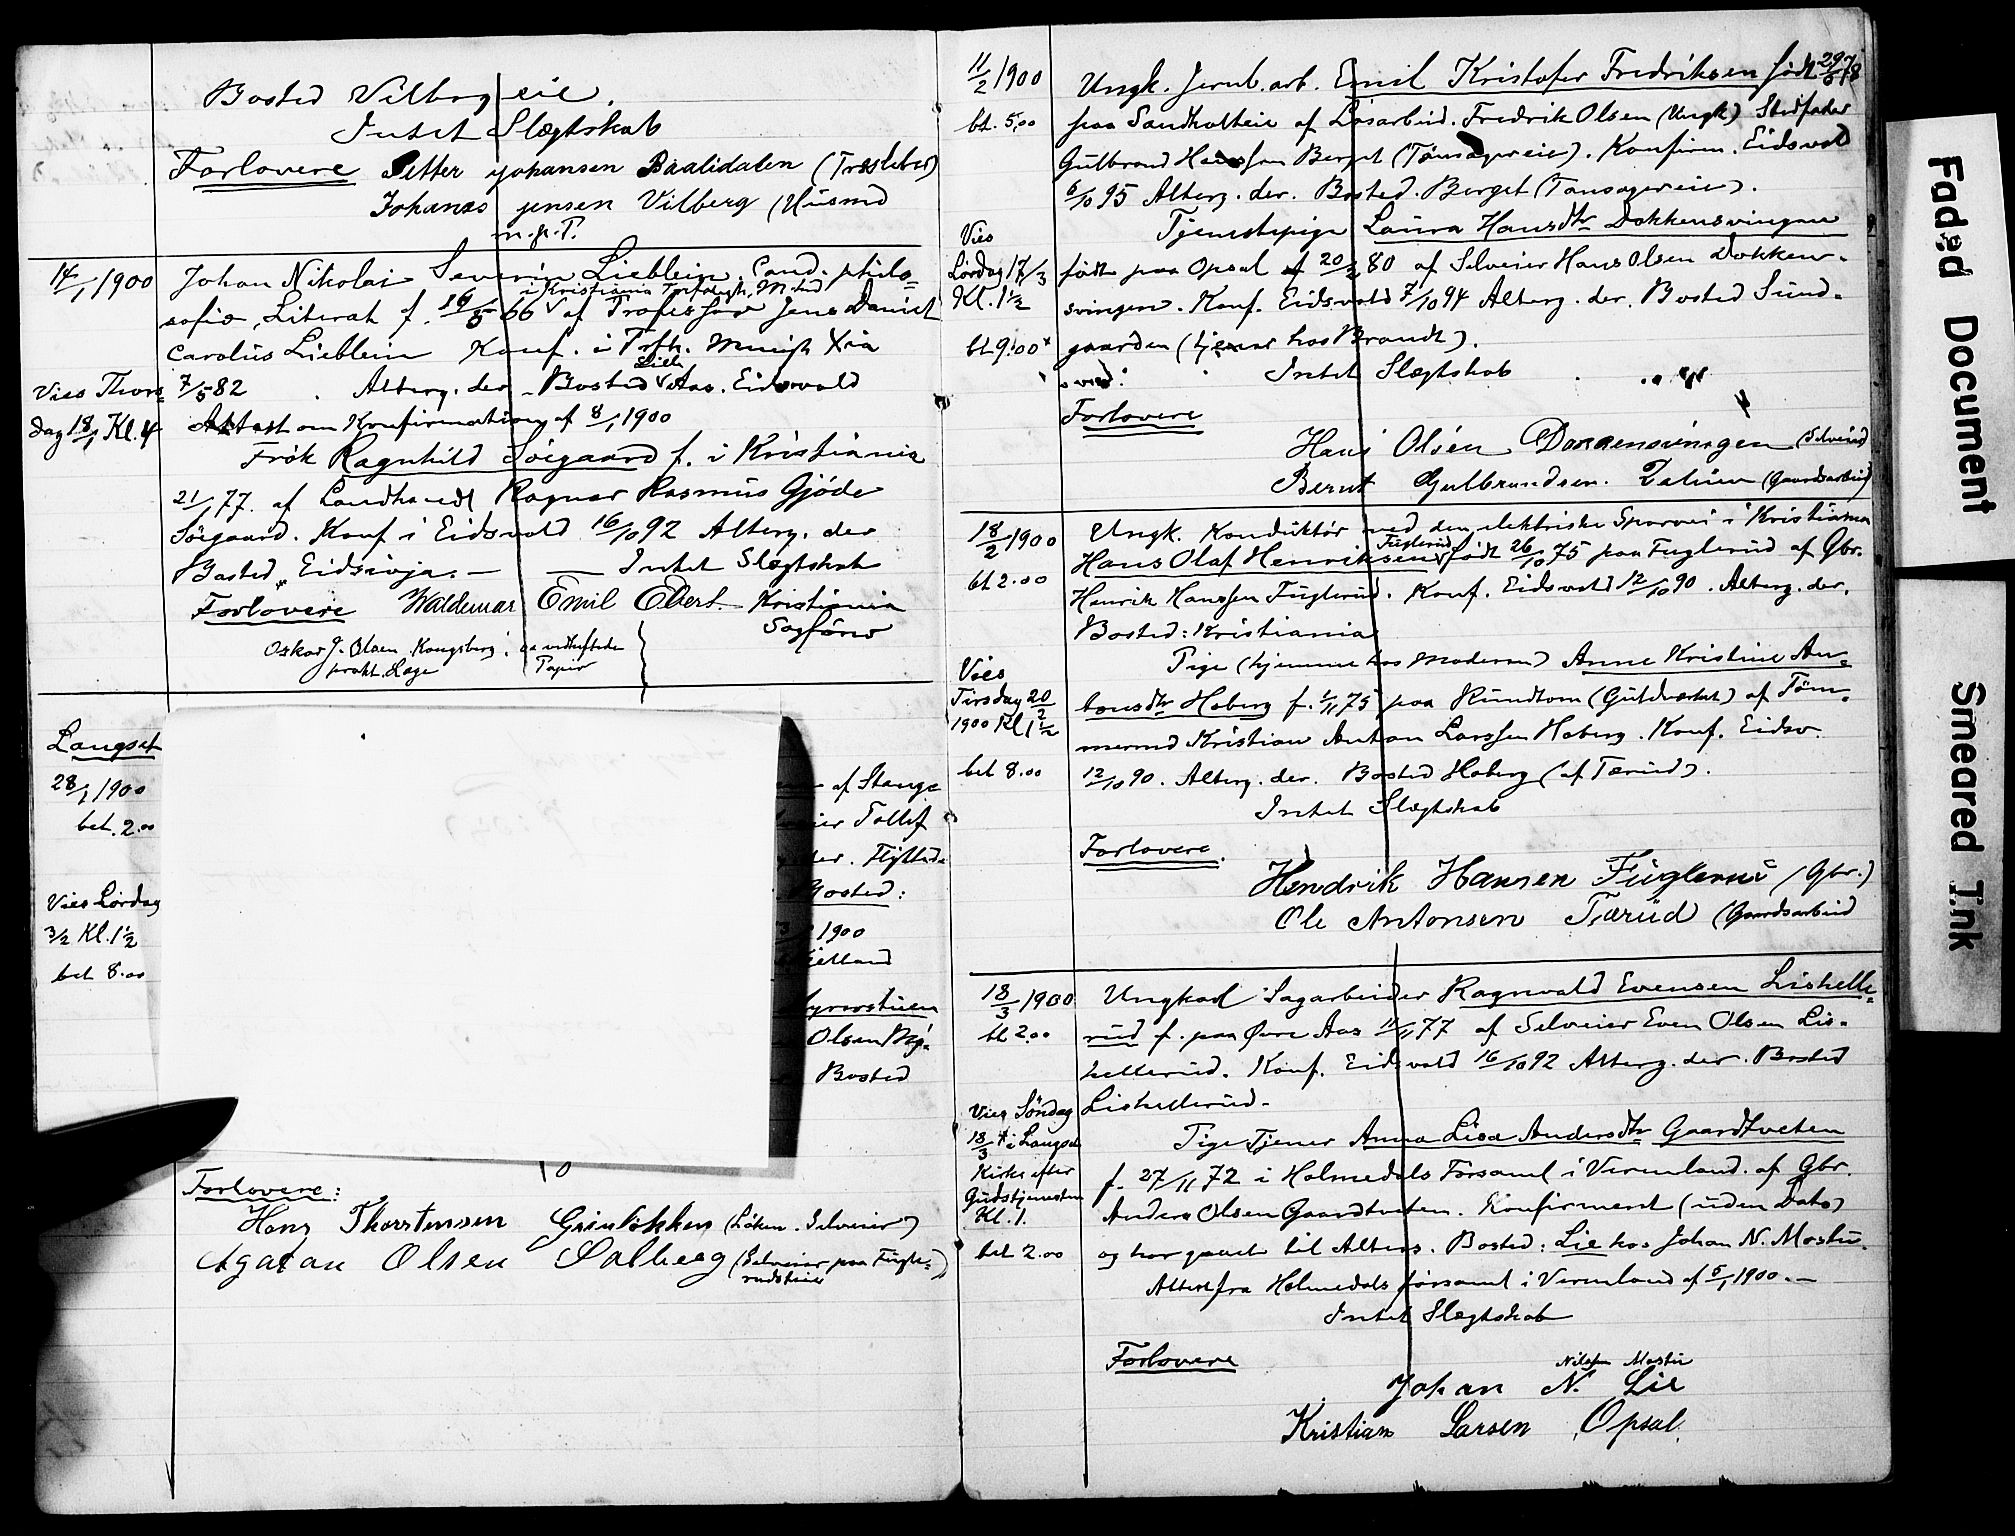 Bosted Vilberg eie.
Intet Slægtskab
Forlovere Petter Johansen Baalidalen
Johanes Jensen Vilberg (Husmd
m.p.P.
14/1 1900 Johan Nikolai Severin Lieblein. Cand. philo=
i Kristiania
sofiæ, Literat f. af Professor Jens Daniel
Carolus Lieblein Konf. i Kria
Lille
Vies Thors= 7/5 82 Alterg. der Bosted Aas. Eidsvold
dag 18/1 Kl. 4 Attest om Konfirmation af 8/1 1900
Frøk Ragnhild Søegaard f. i Kristiania
21/1 77. af Landhandl Ragnar Rasmus Gjöde
Söegaard. Konf i Eidsvold 16/10 92 Alterg. der
Bosted Eidsvoja. — — Intet Slægtskab
Forlovere Waldemar Emil Ebert Kristiania
Sagförer
Oskar J. Olsen Kongsberg vedheftede
prakt. Læge Papir
Langset
28/1 1900 af Stange
bet. 2.00 Tollef
der. Flyttede
Vies Lördag Bosted:
3/2 Kl. 1½ 1900
bet 8.00
Olsen
Bosted
Forlovere:
Hans Thorstensen (Löken. Selveier)
Agaton Olsen Solberg (Selveier paa Fugle=
rudseie)
11/2 1900 Ungk. Jernb.arb. Emil Kristofer Fredriksen født 29/5 78
bt. 5,00 paa Sandholteie af Løsarbeid. Fredrik Olsen (Ungk) Stedfader
Gulbrand Hansen Berget (Tönsagereie). Konfirm. Eidsvold
6/10 95 Alterg. der. Bosted. Berget (Tönsagereie).
Vies Tjenestepige Laura Hansdtr Dokkensvingen
Lørdag 17/3 født paa Opsal 80 af Selveier Hans Olsen Dokken-
Kl. 1½ svingen. Konf. Eidsvold 7/10 94 Alterg. der. Bosted Sund-
bt 9.00 gaarden (tjener hos Brandt).
Intet Slægtskab
Forlovere
Hans Olsen Dokkensvingen (Selveier)
Bernt Gulbrandsen. (Gaardsarbeid)
18/2 1900 Ungk. Konduktör ved den elektriske Sporvei i Kristiania
Fuglerud
bt 2.00 Hans Olaf Henriksen født 26/10 75 paa Fuglerud af Gbr.
Henrik Hanssen Fuglerud. Konf. Eidsvold 12/10 90. Alterg. der.
Bosted: Kristiania
Vies Pige (hjemme hos Moderen) Anne Kristine An=
Tirsdag 20/2 tonsdtr Hoberg f. 1/11 75 paa Rundtom (Guldverket) af Töm=
1900 Kl 1½ mermd Kristian Anton Larssen Hoberg. Konf. Eidsv.
bet 8.00 12/10 90. Alterg. der. Bosted Hoberg (af Tærud).
Intet Slægtskab
Forlovere.
Hendrik Hansen Fuglerud (Gbr.)
Ole Antonsen Tærud (Gaardsarbeid
18/3 1900 Ungkarl Sagarbeider Ragnvald Evensen Liskelle=
bt 2.00 rud f. paa Øvre Aas 11/11 77 af Selveier Even Olsen Lis-
kellerud. Konf. Eidsvold 16/10 92 Alterg. der. Bosted
Vies Søndag Liskellerud.
18/3 i Langset Pige Tjener Anna Lisa Andersdtr Gaardtveten
Kirke efter f. 27/11 72 i Holmedals Forsaml i Vermland. af Gbr.
Gudstjenesten Anders Olsen Gaardtveten. Konfirmeret (uden Dato)
Kl. 1.
bet 2.00 og har gaaet til Alters. Bosted: Lie hos Johan N. Mostu.
Attest fra Holmedals församl i Vermland af 5/1 1900.—
Intet Slægtskab
Forlovere Nilssen Mostu
Johan N. Lie
Kristian Larsen Opsal.
Faded Document
Smeared Ink